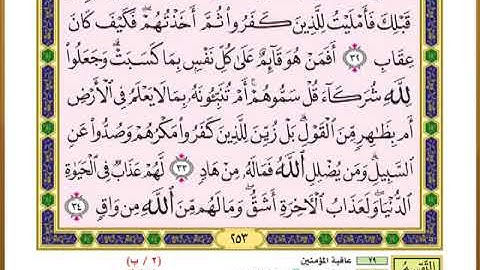 قَبْلِكَ فَأَمْلَيْتُ لِلَّذِينَ كَفَرُوا۟ ثُمَّ أَخَذْتُهُمْ ۖ فَكَيْفَ كَانَ
عِقَابِ ٣٢ أَفَمَنْ هُوَ قَآئِمٌ عَلَىٰ كُلِّ نَفْسٍۭ بِمَا كَسَبَتْ ۗ وَجَعَلُوا۟
لِلَّهِ شُرَكَآءَ قُلْ سَمُّوهُمْ ۚ أَمْ تُنَبِّـُٔونَهُۥ بِمَا لَا يَعْلَمُ فِى ٱلْأَرْضِ
أَم بِظَـٰهِرٍ مِّنَ ٱلْقَوْلِ ۗ بَلْ زُيِّنَ لِلَّذِينَ كَفَرُوا۟ مَكْرُهُمْ وَصُدُّوا۟ عَنِ
ٱلسَّبِيلِ ۗ وَمَن يُضْلِلِ ٱللَّهُ فَمَا لَهُۥ مِنْ هَادٍ ٣٣ لَّهُمْ عَذَابٌ فِى ٱلْحَيَوٰةِ
ٱلدُّنْيَا ۖ وَلَعَذَابُ ٱلْـَٔاخِرَةِ أَشَقُّ ۖ وَمَا لَهُم مِّنَ ٱللَّهِ مِن وَاقٍ ٣٤
٢٥٣
٢٩ عاقبة المؤمنين
(٢ / ب)